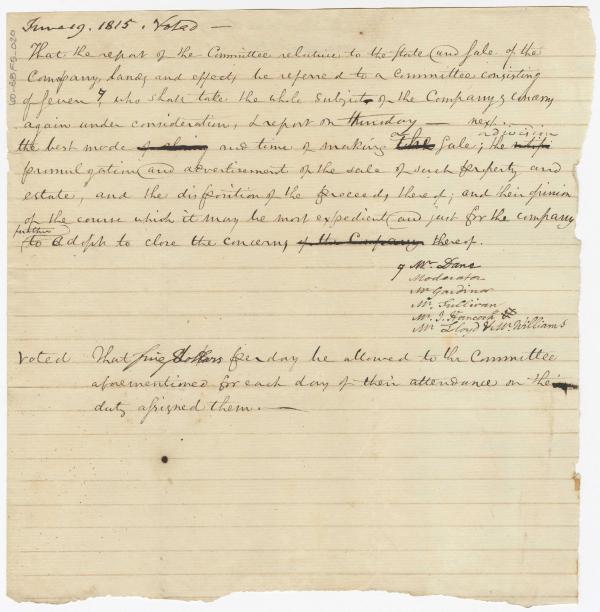 June 19. 1815. Voted —
That the report of the Committee relative to the state and sale of the
Company, lands and effects be referred to a Committee consisting
of seven 7 who shall take the whole subject of the Company's concerns
again under consideration, & report on thursday — next.
the best mode of and time of making the sale; the
promulgation and advertisement of the sale of such property and
estate, and the disposition of the proceeds thereof; and their opinion
of the course which it may be most expedient and just for the company
further
to adopt to close the concerns of the Company thereof.
Mr. Dane
Moderator
Mr Gardiner
Mr. Sullivan
Mr. J. Hancock
Mr Lloyd & Mr. Williams
Voted That five Dollars per day be allowed to the Committee
aforementioned for each day of their attendance on the
duty assigned them. —